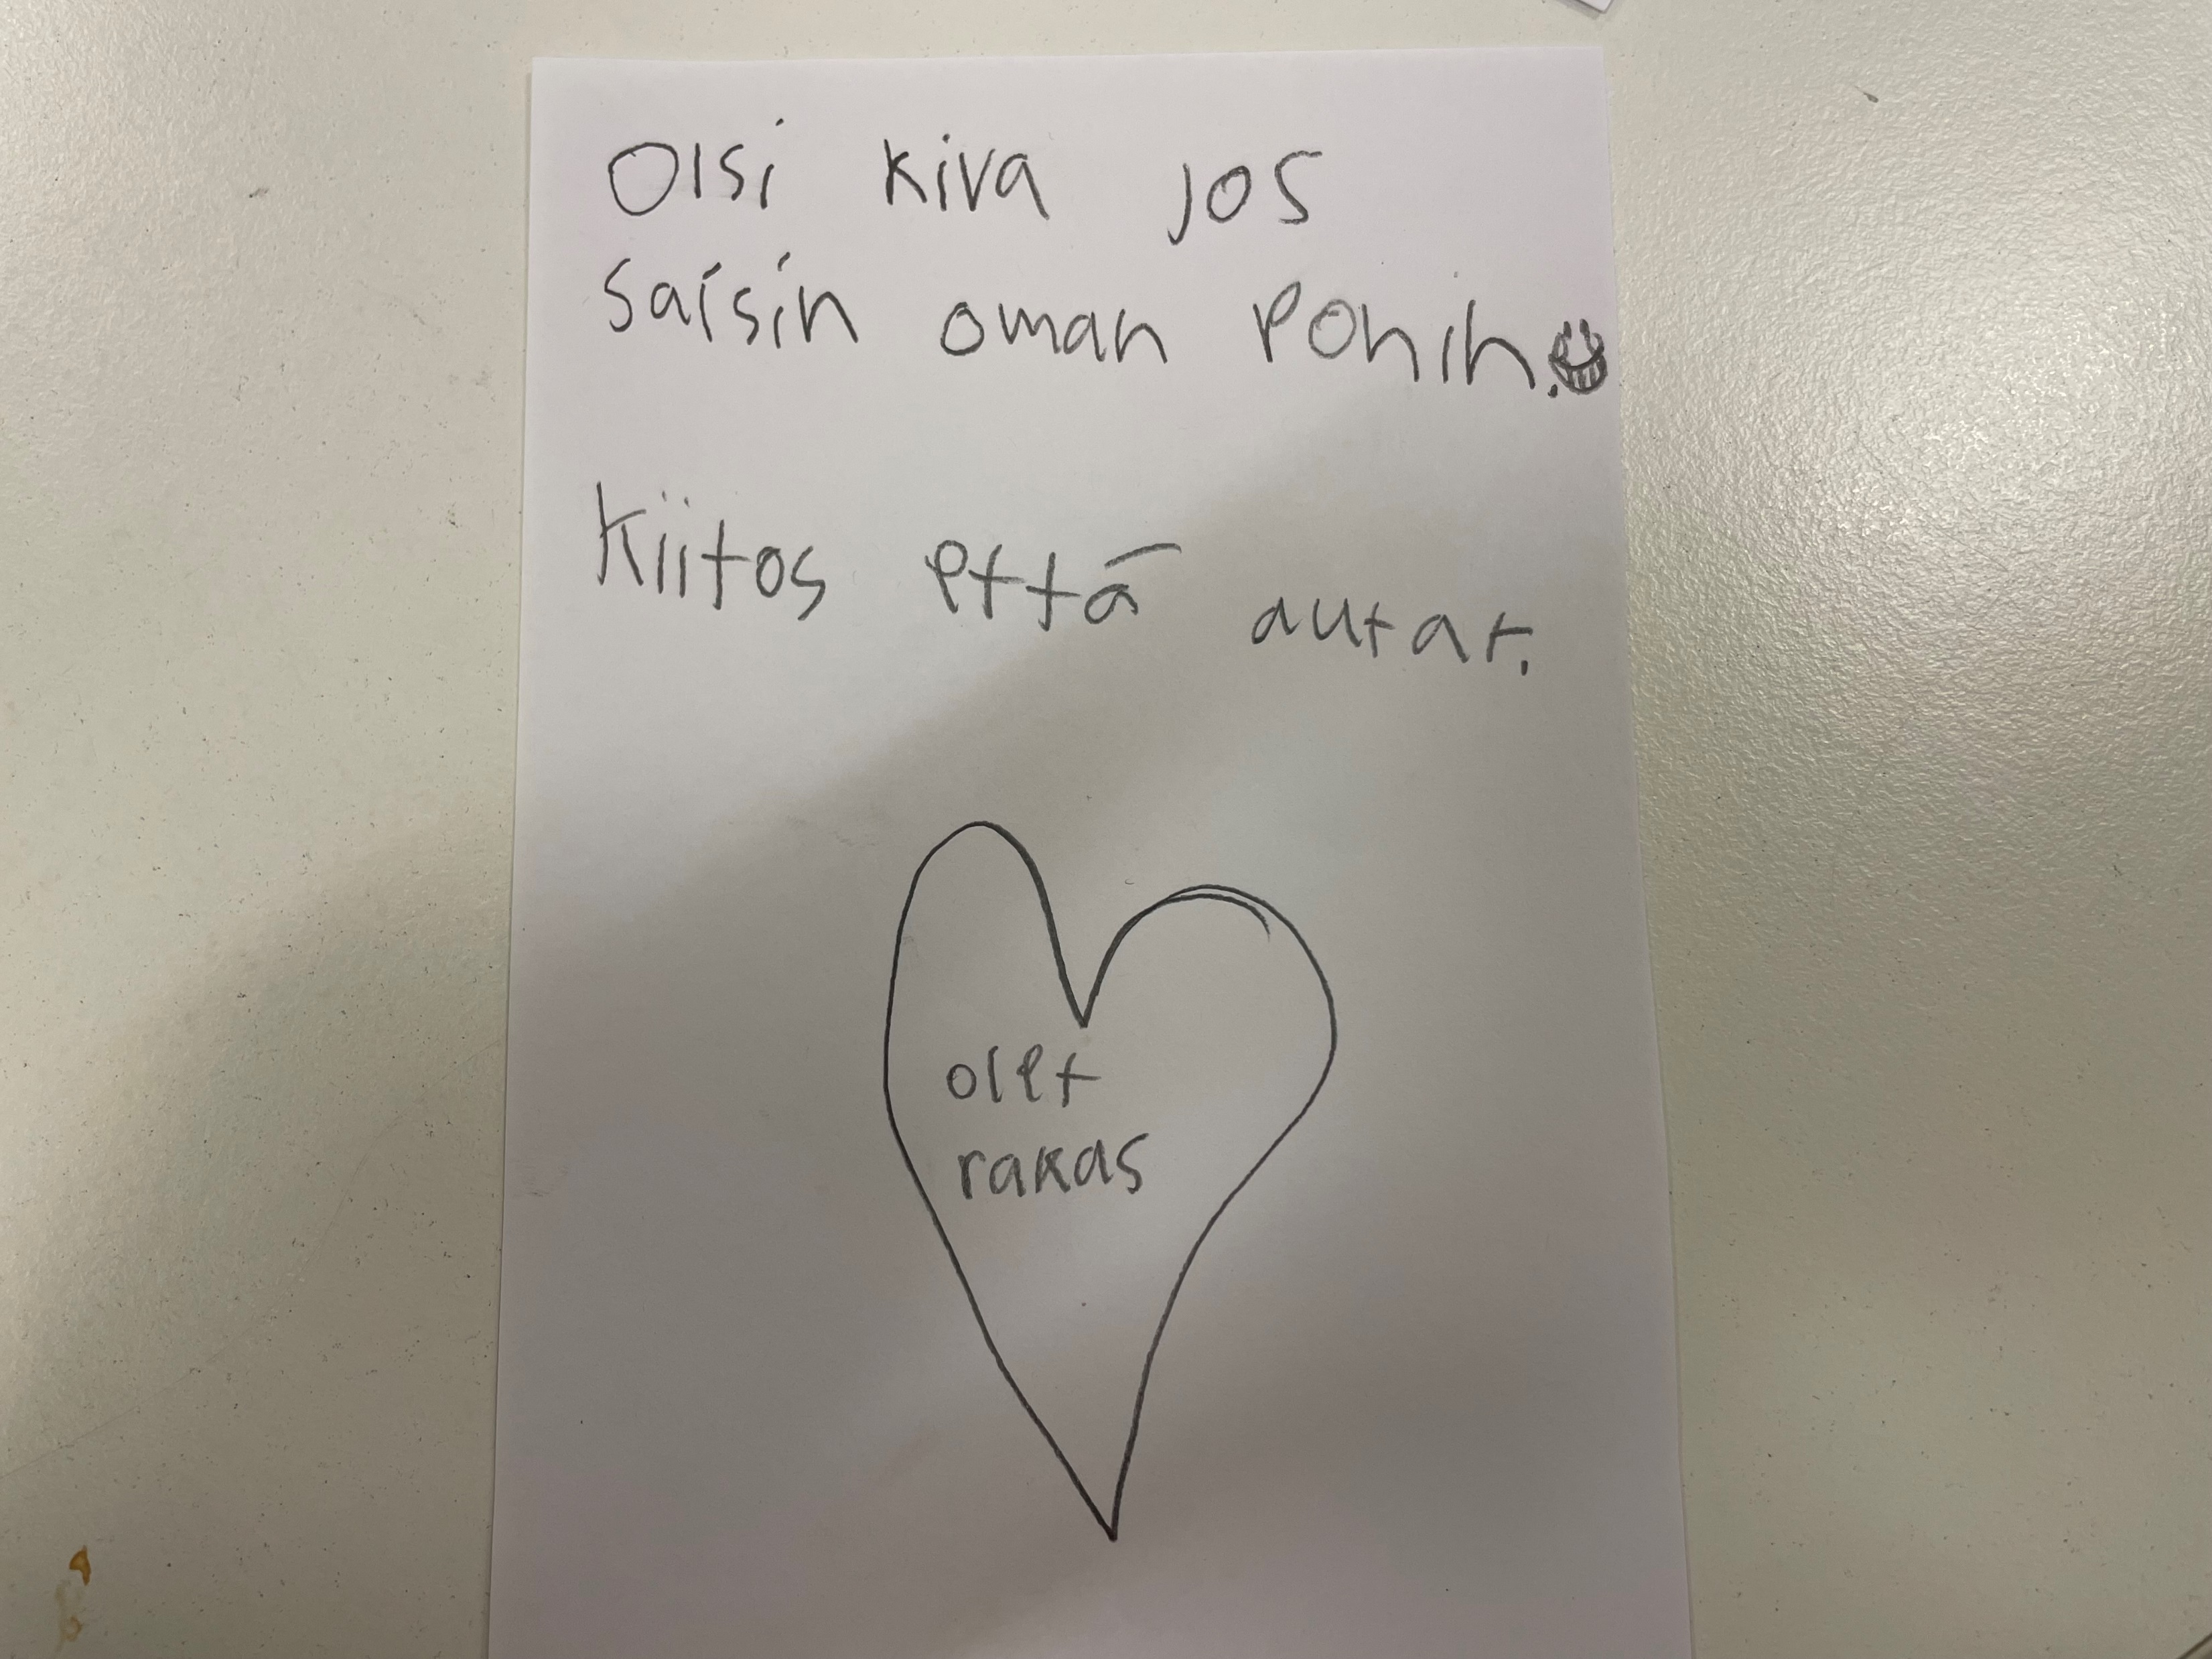 Olsi kiva jos
saisin oman Ponin.
Kiitos että autat.
olet
rakas